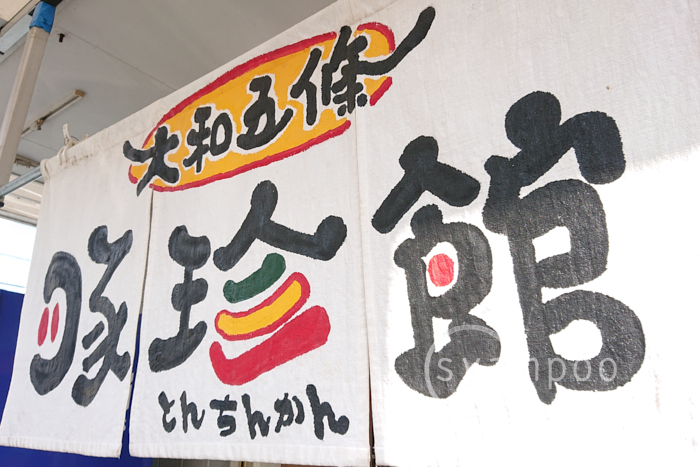 大和五條
豚珍館
とんちんかん
syanpoo